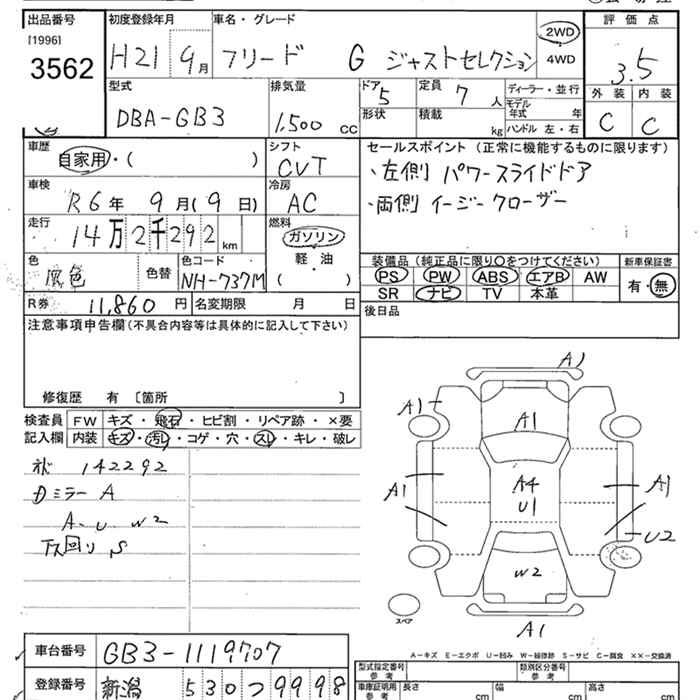 出品番号 初度登録年月 車名・グレード 評価点
[1996] 3562 H21 9月 フリード G ジャストセレクション 2WD 4WD 3.5
型式 排気量 ドア 5 定員 7人 ディーラー・並行 外装 内装
DBA-GB3 1,500 cc 形状 積載 kg モデル年式 年 C C
ハンドル 左・右
車歴 シフト セールスポイント (正常に機能するものに限ります)
自家用・( ) CVT ・左側 パワースライドドア
車検 冷房 ・両側 イージークローザー
R6年 9月(9日) AC
走行 燃料
14万2千292km ガソリン
軽油
( )
色 色コード 装備品 (純正品に限り○をつけてください) 新車保証書
灰色 色替 NH-737M PS PW ABS エアB AW 有・無
SR ナビ TV 本革
R券 11,860円 名変期限 月 日 後日品
注意事項申告欄(不具合内容等は具体的に記入して下さい)
修復歴 有 〔箇所 〕
検査員 FW キズ・飛石・ヒビ割・リペア跡・×要
記入欄 内装 キズ・汚レ・コゲ・穴・スレ・キレ・破レ
142292
Dミラー A
A U W2
下回り S
A1
A1 A1
A1 A4 A1
U1
U2
W2
スペア
A1
A-キズ E-エクボ U-凹み W-補修跡 S-サビ C-腐食 ××-交換済
車台番号 GB3-1119707
登録番号 新潟 530 つ 9998
型式指定番号 参考 類別区分番号 参考
車庫証明用 参考 長さ cm 幅 cm 高さ cm